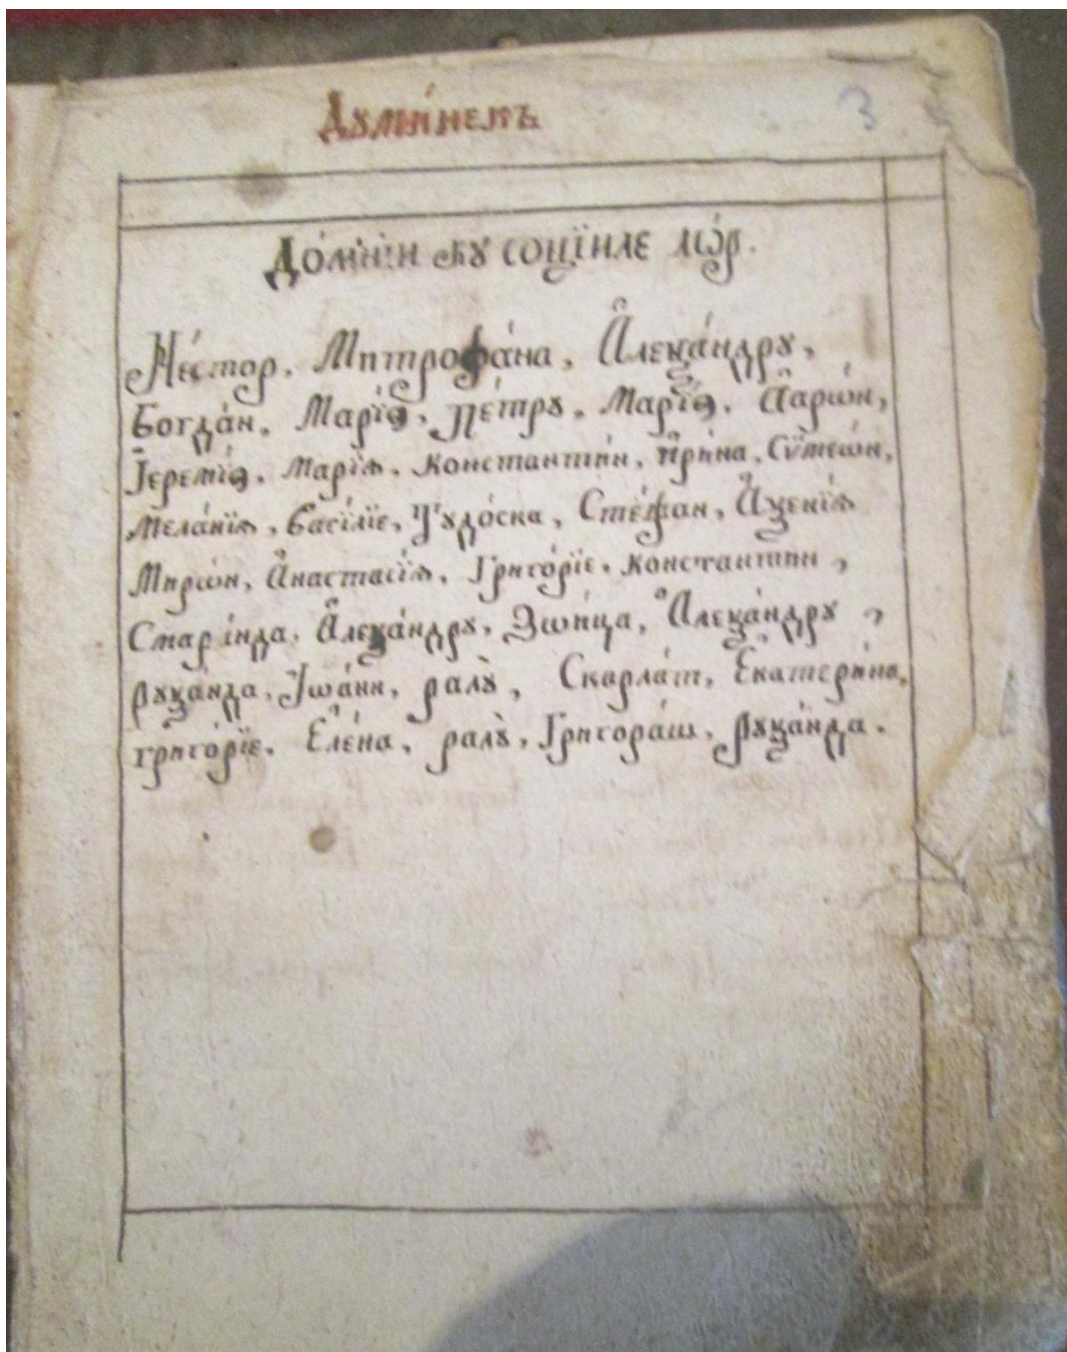 Дꙋмн́некъ
3.
До́мнїи кꙋ соцїиле лѡ́р.
Не́стор. Митрофа́на, А҆леѯа́ндрꙋ,
Богда́н. Марі́ѧ, пе́трꙋ. Марі́ѧ. А҆арѡ́н,
Іеремі́ѧ. Марі́ѧ. Константи́н, и҆ри́на, Сѷмеѡ́н,
Мела́нїѧ, Васі́лїе, Тꙋдо́ска, Сте́фан, А҆ѯенїѧ
Мирѡ́н, А҆настасі́ѧ, Григо́рїе. Константин,
Смара́нда. А҆леѯа́ндрꙋ, Зѡи́ца, А҆леѯа́ндрꙋ,
Рꙋѯа́нда, Іѡа́нн, ралꙋ̀, Скарла́т, Е҆катери́на,
григо́рїе. Е҆ле́на, ралꙋ̀, Григора́ш, Рꙋѯа́нда.